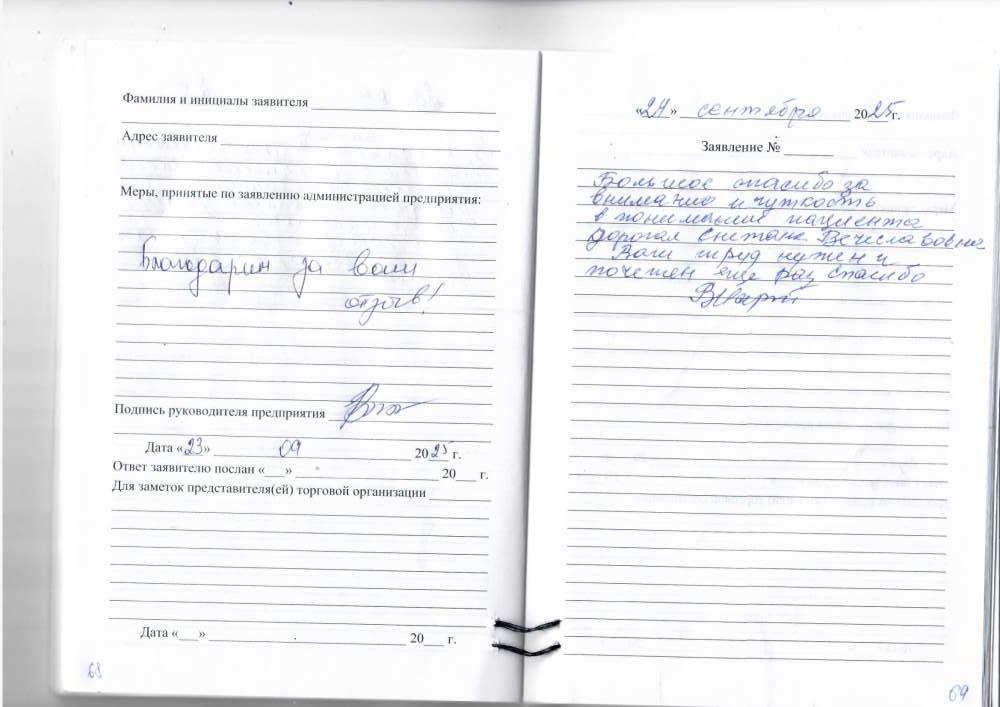 Фамилия и инициалы заявителя
Адрес заявителя
Меры, принятые по заявлению администрацией предприятия:
Благодарим за ваш
отзыв!
Подпись руководителя предприятия
Дата «23» 09 2025 г.
Ответ заявителю послан «___» 20___ г.
Для заметок представителя(ей) торговой организации
Дата «___» 20___ г.
68
«24» сентября 2025г.
Заявление №
Большое спасибо за
внимание и чуткость
в понимынии пациента
дорогая Светлана Вечеславовна
Ваш труд нужен и
почетен еще раз спасибо
69